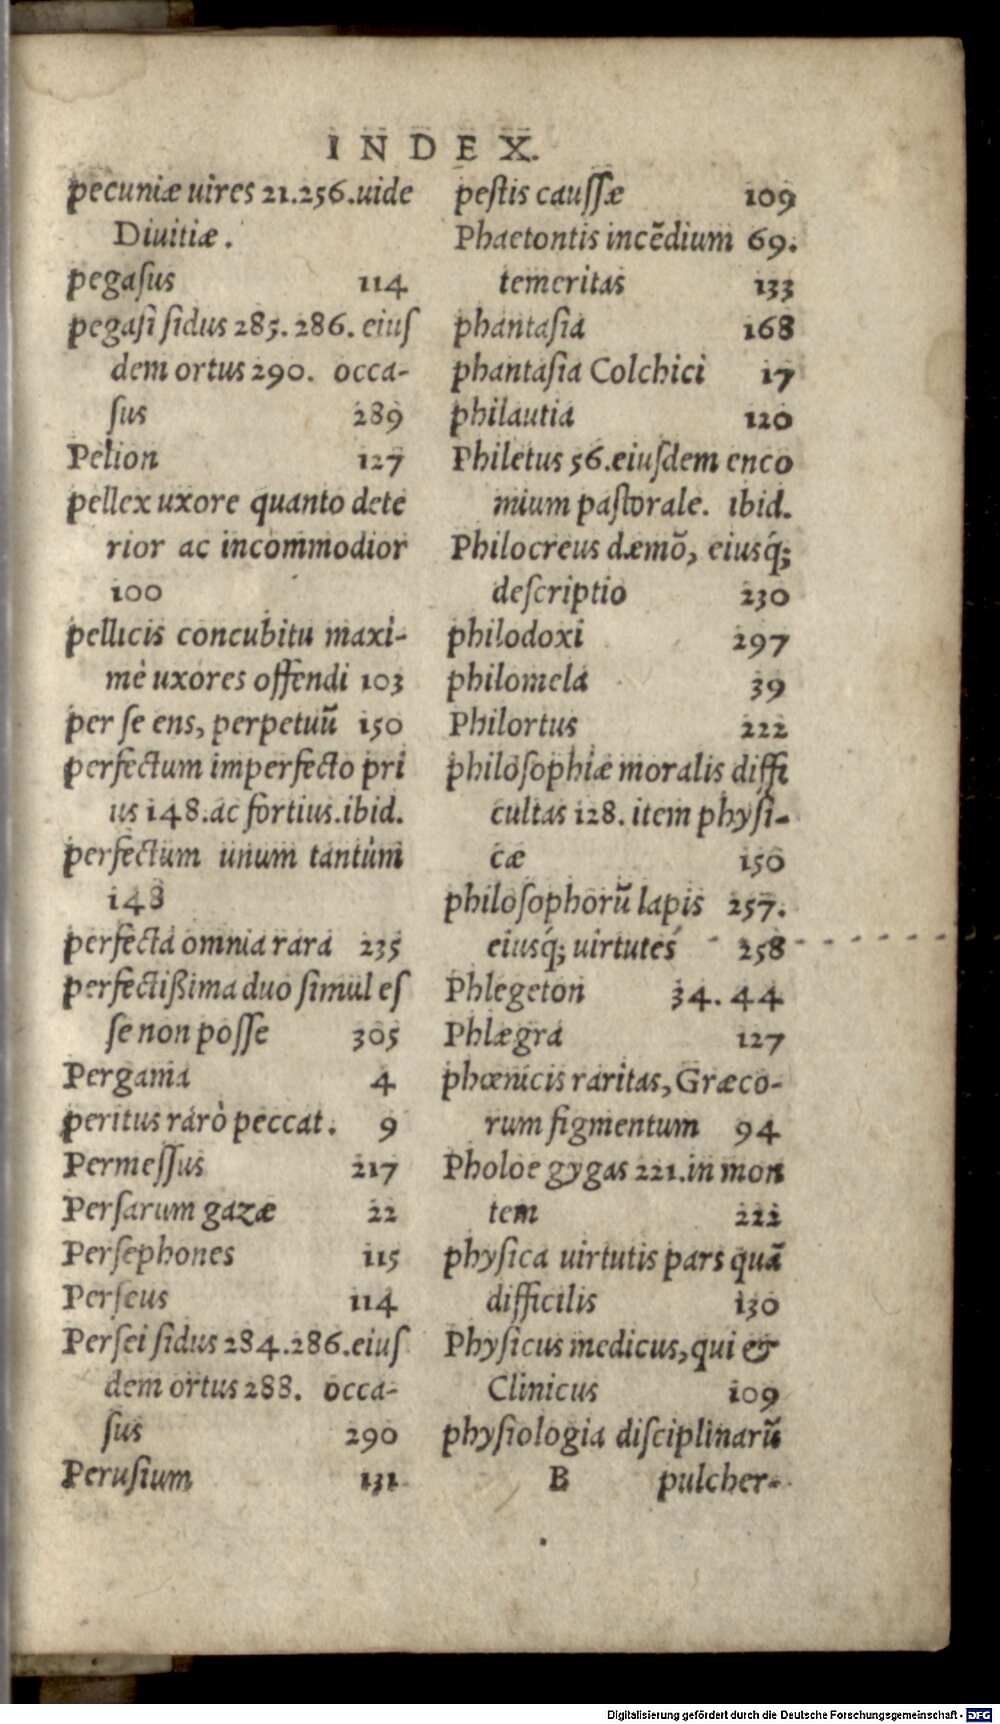 INDEX.
pecuniæ uires 21.256.uide
Diuitiæ.
pegaſus 114
pegaſi ſidus 285. 286. eiuſ
dem ortus 290. occa-
ſus 289
Pelion 127
pellex uxore quanto dete
rior ac incommodior
100
pellicis concubitu maxi-
mè uxores offendi 103
per ſe ens, perpetuũ 150
perfectum imperfecto pri
us 148.ac fortius.ibid.
perfectum unum tantùm
148
perfecta omnia rara 235
perfectißima duo ſimul eſ
ſe non poſſe 305
Pergama 4
peritus rarò peccat. 9
Permeſſus 217
Perſarum gazæ 22
Perſephones 115
Perſeus 114
Perſei ſidus 284.286.eiuſ
dem ortus 288. occa-
ſus 290
Peruſium 131
peſtis cauſſæ 109
Phaetontis incẽdium 69.
temeritas 133
phantaſia 168
phantaſia Colchici 17
philautia 120
Philetus 56.eiuſdem enco
mium paſtorale. ibid.
Philocreus dæmõ, eiusq́;
deſcriptio 230
philodoxi 297
philomela 39
Philortus 222
philoſophiæ moralis diffi
cultas 128. item phyſi-
cæ 150
philoſophorũ lapis 257.
eiusq́; uirtutes 258
Phlegeton 34. 44
Phlægra 127
phœnicis raritas, Græco-
rum figmentum 94
Pholoe gygas 221.in mon
tem 222
phyſica uirtutis pars quã
difficilis 130
Phyſicus medicus,qui &
Clinicus 109
phyſiologia diſciplinarũ
B pulcher-
Digitalisierung gefördert durch die Deutsche Forschungsgemeinschaft - DFG